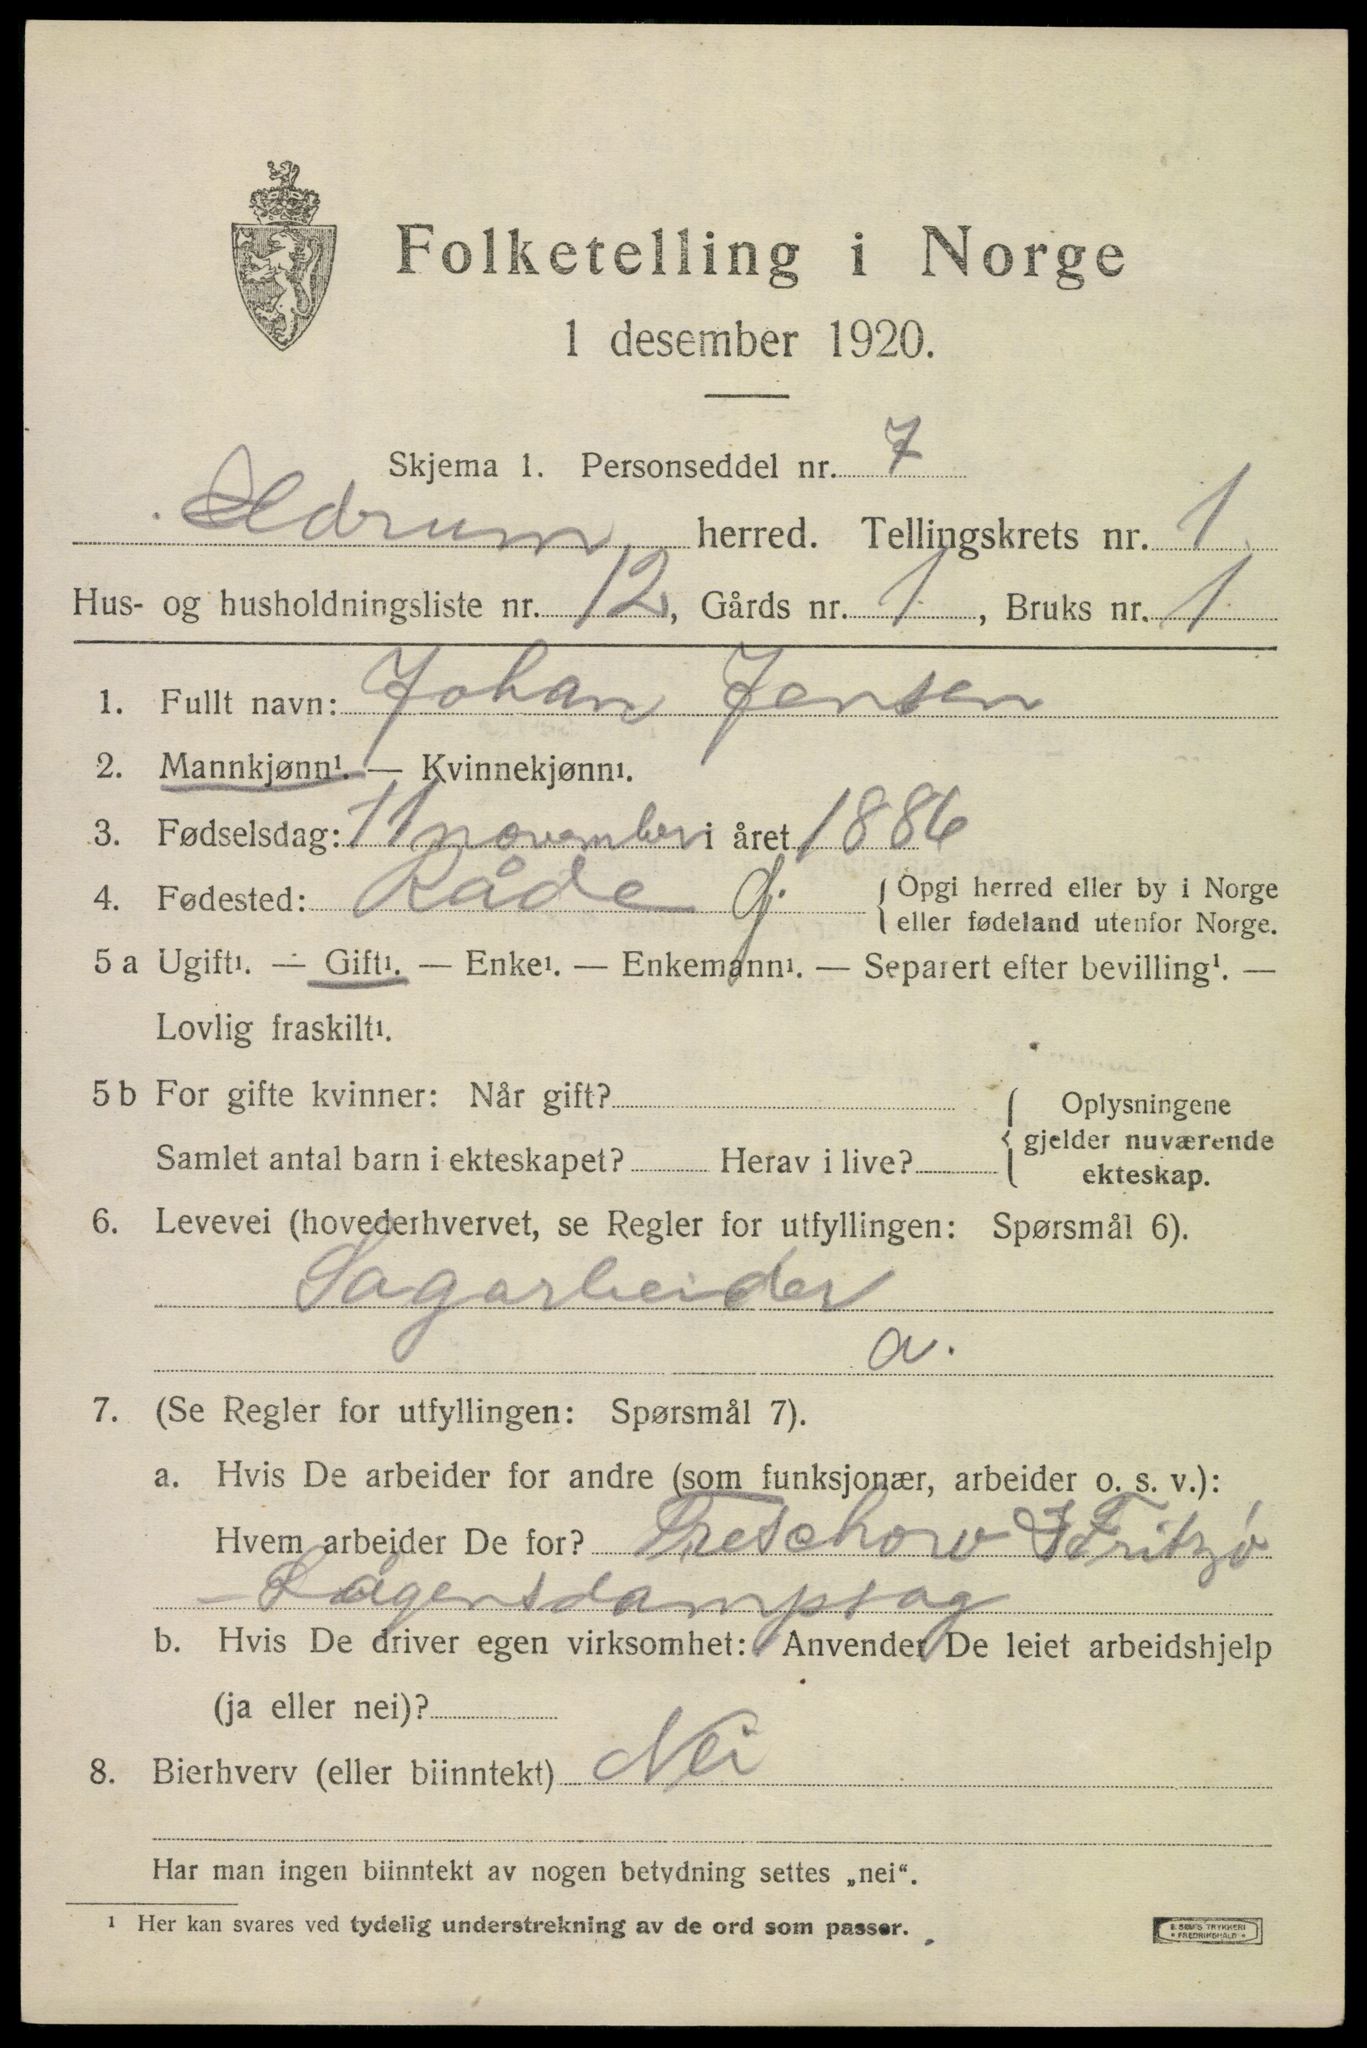 Folketelling i Norge
1 desember 1920.
Skjema 1. Personseddel nr. 7
Hedrum herred. Tellingskrets nr. 1
Hus- og husholdningsliste nr. 12, Gårds nr. 1, Bruks nr. 1
1. Fullt navn: Johan Jensen
2. Mannkjønn¹. — Kvinnekjønn¹.
3. Fødselsdag: 11 november i året 1886
4. Fødested: Råde { Opgi herred eller by i Norge
eller fødeland utenfor Norge.
5 a Ugift¹. — Gift¹. — Enke¹. — Enkemann¹. — Separert efter bevilling¹. —
Lovlig fraskilt¹.
5 b For gifte kvinner: Når gift?
Samlet antal barn i ekteskapet? Herav i live?
{ Oplysningene
gjelder nuværende
ekteskap.
6. Levevei (hovederhvervet, se Regler for utfyllingen: Spørsmål 6).
Sagarbeider
a.
7. (Se Regler for utfyllingen: Spørsmål 7).
a. Hvis De arbeider for andre (som funksjonær, arbeider o. s. v.):
Hvem arbeider De for? Treschow Fritzø
- Lågensdampsag
b. Hvis De driver egen virksomhet: Anvender De leiet arbeidshjelp
(ja eller nei)?
8. Bierhverv (eller biinntekt) Nei
Har man ingen biinntekt av nogen betydning settes „nei“.
¹ Her kan svares ved tydelig understrekning av de ord som passer.
E. SEM'S TRYKKERI
* FREDRIKSHALD *